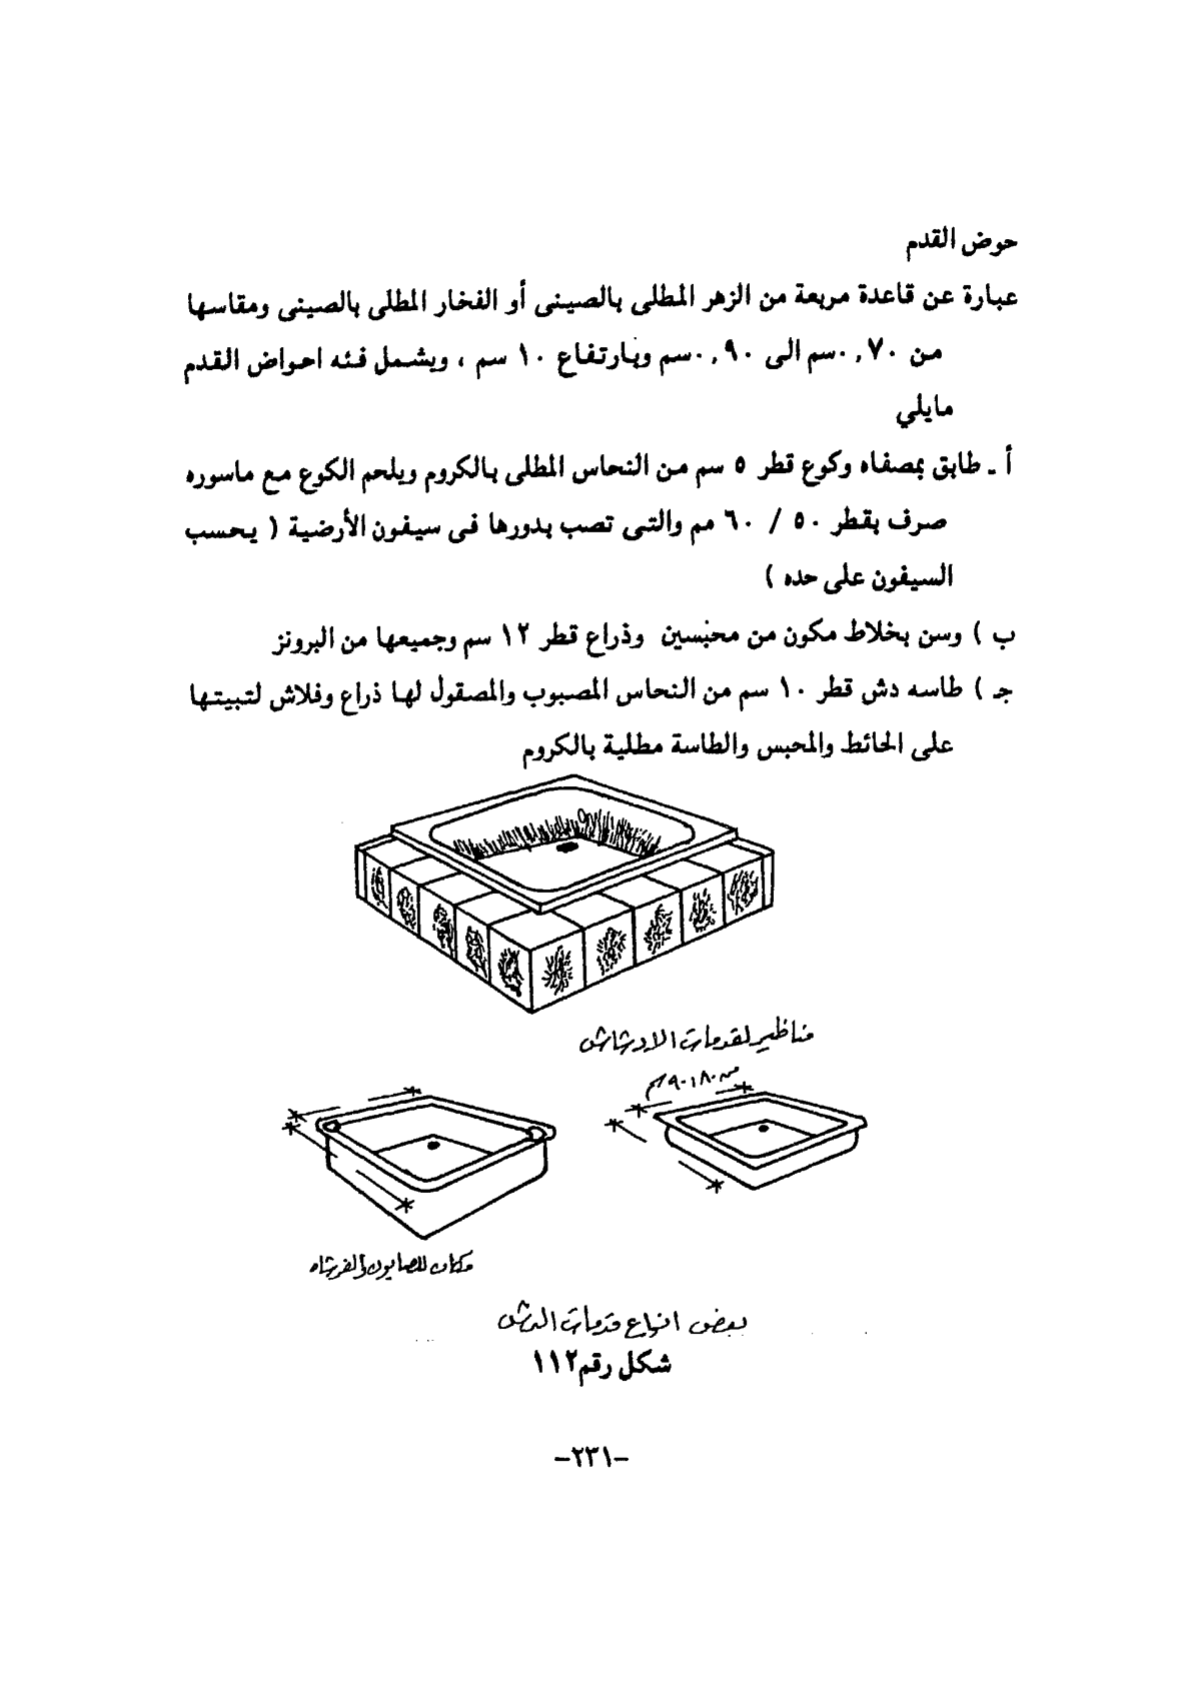 حوض القدم
عبارة عن قاعدة مربعة من الزهر المطلى بالصينى أو الفخار المطلى بالصينى ومقاسها
من ٠,٧٠سم الى ٠,٩٠سم وبارتفاع ١٠ سم ، ويشمل فئه احواض القدم
مايلي
أ ـ طابق بمصفاه وكوع قطر ٥ سم من النحاس المطلى بالكروم ويلحم الكوع مع ماسوره
صرف بقطر ٥٠ / ٦٠ مم والتى تصب بدورها فى سيفون الأرضية ( يحسب
السيفون على حده )
ب ) وسن بخلاط مكون من محبسين وذراع قطر ١٢ سم وجميعها من البرونز
جـ ) طاسه دش قطر ١٠ سم من النحاس المصبوب والمصقول لها ذراع وفلاش لتبيتها
على الحائط والمحبس والطاسة مطلية بالكروم
مناظير لقدمات الادشاش
من ٨٠ / ٩٠ سم
مكان للصابون والفرشاه
بعض انواع قدمات الدش
شكل رقم١١٢
-٢٣١-